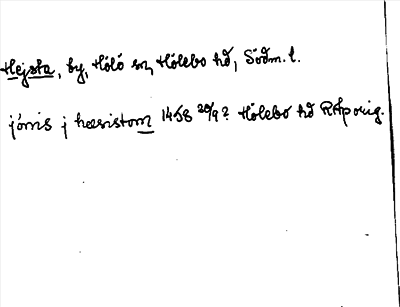 Hejsta, by, Hölö sn, Hölebo hd, Södm. l.
jónis j hæsistom 1458 20/9? Hölebo hd RAp orig.